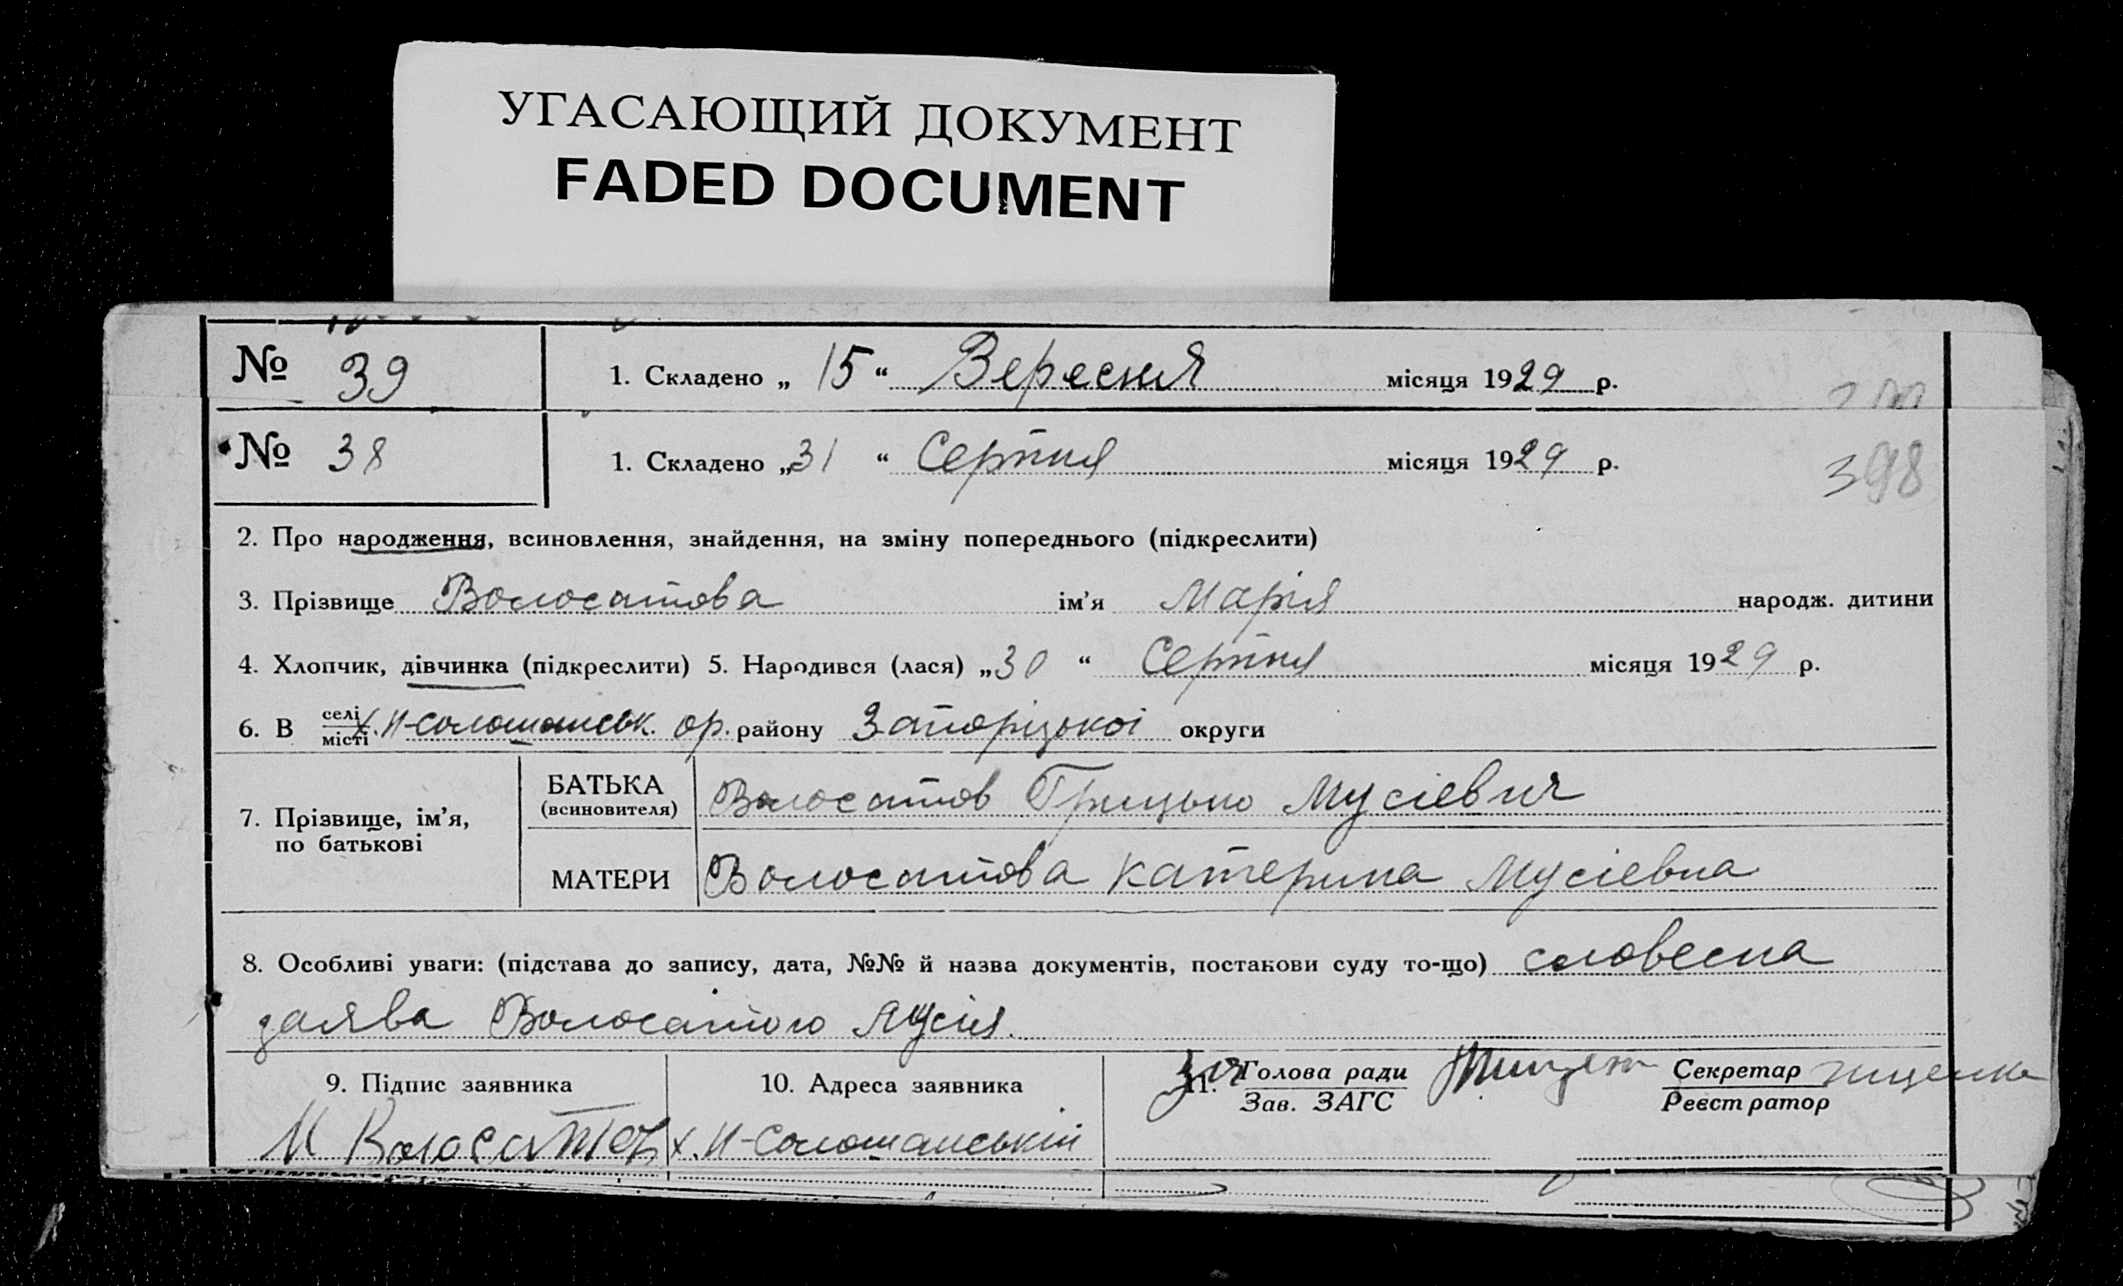 УГАСАЮЩИЙ ДОКУМЕНТ
FADED DOCUMENT
№ 39 1. Складено „ 15 “ Вересня місяця 1929 р.
№ 38 1. Складено „31 “ Серпня місяця 1929 р. 398
2. Про народження, всиновлення, знайдення, на зміну попереднього (підкреслити)
3. Прізвище Волосатова ім’я Марія народж. дитини
4. Хлопчик, дівчинка (підкреслити) 5. Народився (лася) „30 “ Серпня місяця 1929 р.
6. В селі місті х. Н-Солошанськ. ор. району Запоріцької округи
7. Прізвище, ім’я, по батькові
БАТЬКА (всиновителя) Волосатов Грицько Мусієвич
МАТЕРИ Волосатова Катерина Мусієвна
8. Особливі уваги: (підстава до запису, дата, №№ й назва документів, постанови суду то-що) словесна
заява Волосатого Мусія.
9. Підпис заявника 10. Адреса заявника 11. Голова ради Секретар
Зав. ЗАГС Реєстратор
М Волосатов х. Н-Солошанський